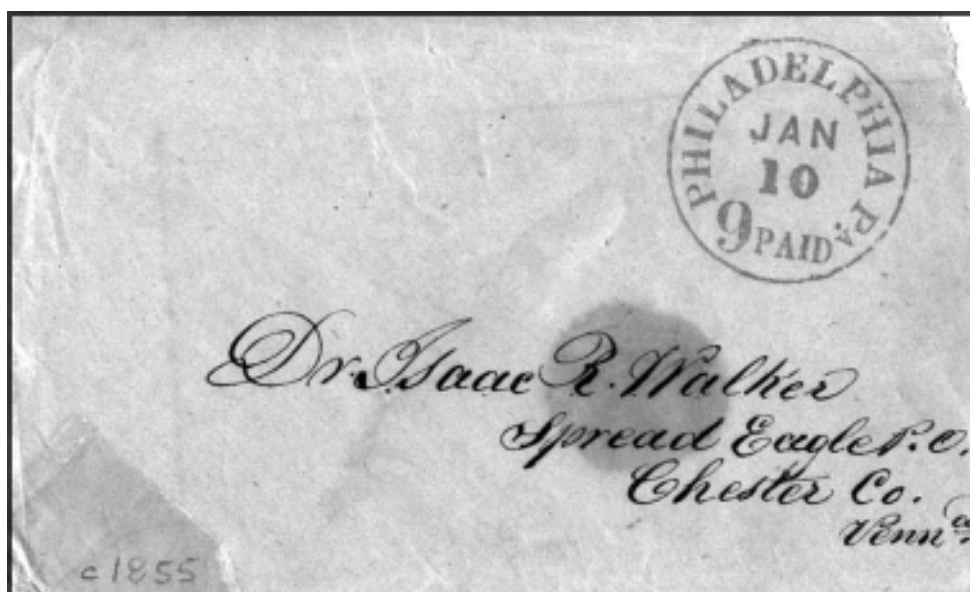 PHILADELPHIA Pa
JAN
10
9 PAID
Dr. Isaac R. Walker
Spread Eagle P.O.
Chester Co.
Penna
c 1855